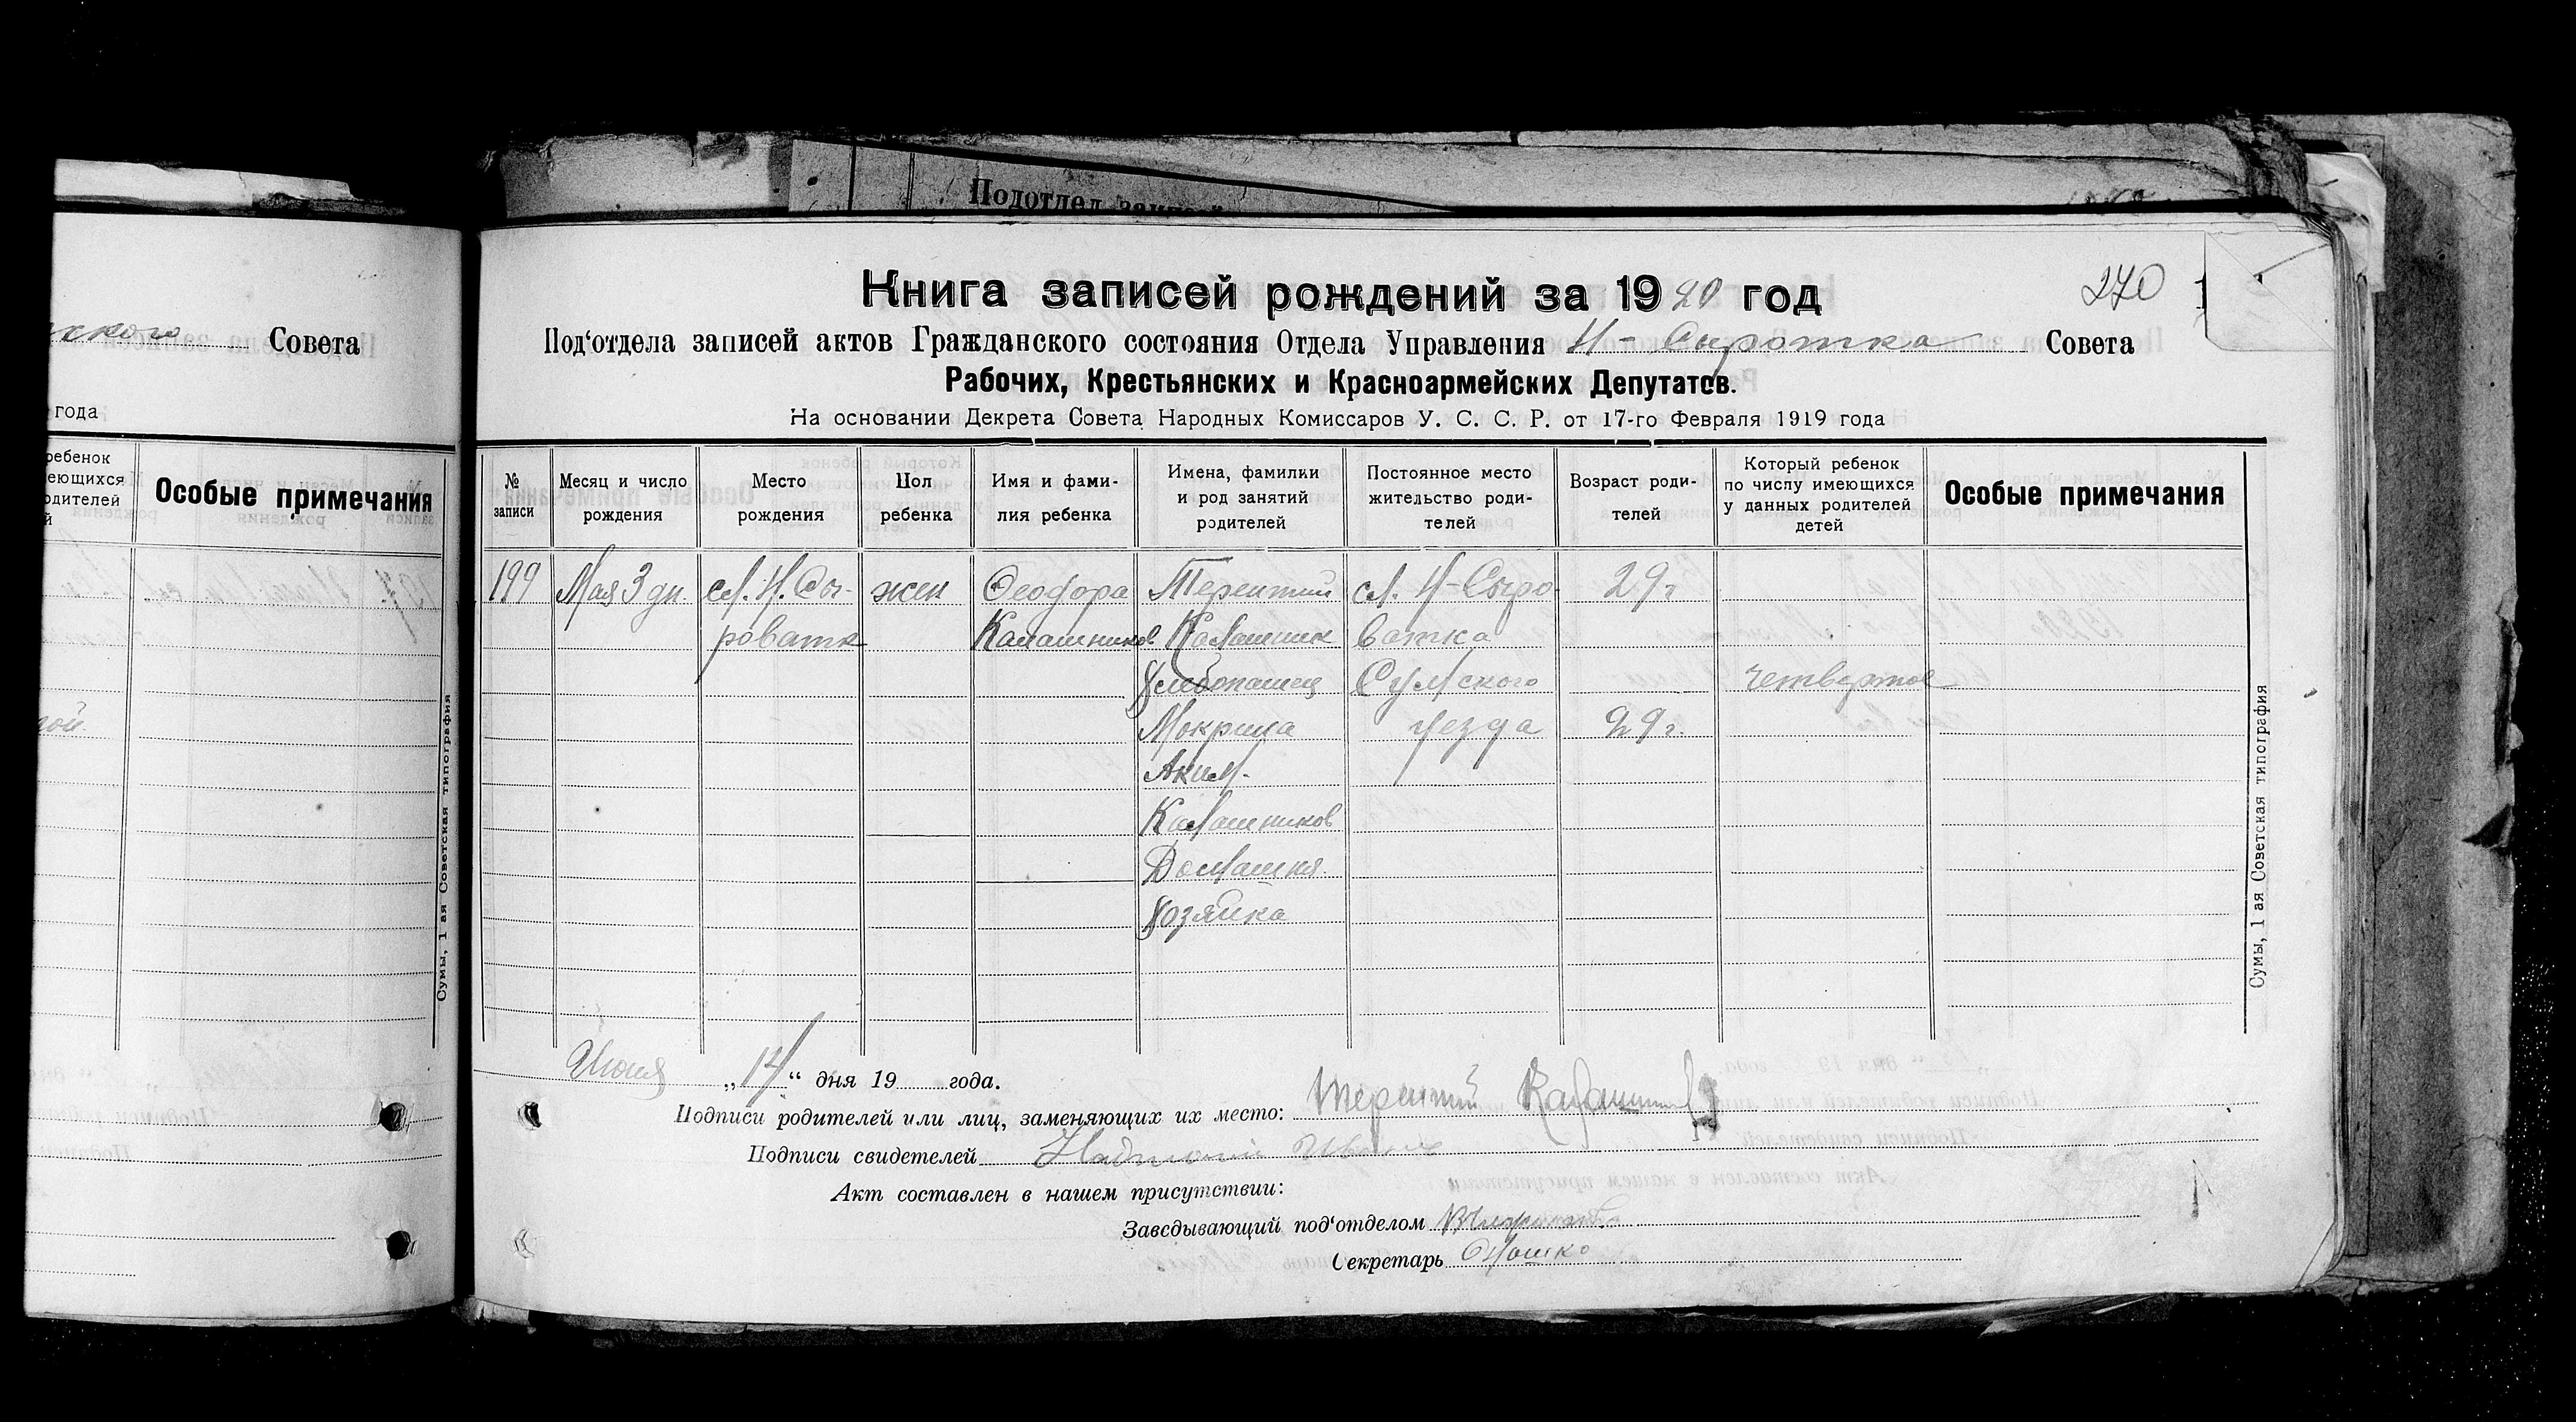 Подотдел
ского Совета
года
ребенок
еющихся
одителей
й
Особые примечания
Сумы, 1 ая Советская типография
Книга записей рождений за 1920 год
270
Под'отдела записей актов Гражданского состояния Отдела Управления Н-Сыротка Совета
Рабочих, Крестьянских и Красноармейских Депутатов.
На основании Декрета Совета Народных Комиссаров У. С. С. Р. от 17-го Февраля 1919 года
№ записи
Месяц и число рождения
Место рождения
Пол ребенка
Имя и фами-
лия ребенка
Имена, фамилки
и род занятий
родителей
Постоянное место
жительство роди-
телей
Возраст роди-
телей
Который ребенок
по числу имеющихся
у данных родителей
детей
Особые примечания
199 Мая 3 дн. сл. Н. Сы- жен Феодора Терентий сл. Н-Сыро- 29 г
роватк Калашников Калашник ватка
Хлебопашец Сумского Четвертое
Мокрина уезда 29 г.
Аким.
Калашников
Домашня
хозяйка
Июня „14“ дня 19 года.
Подписи родителей или лиц, заменяющих их место: Терентий Калашников
Подписи свидетелей
Акт составлен в нашем присутствии:
Заведывающий под'отделом
Секретарь
Сумы, 1 ая Советская типография